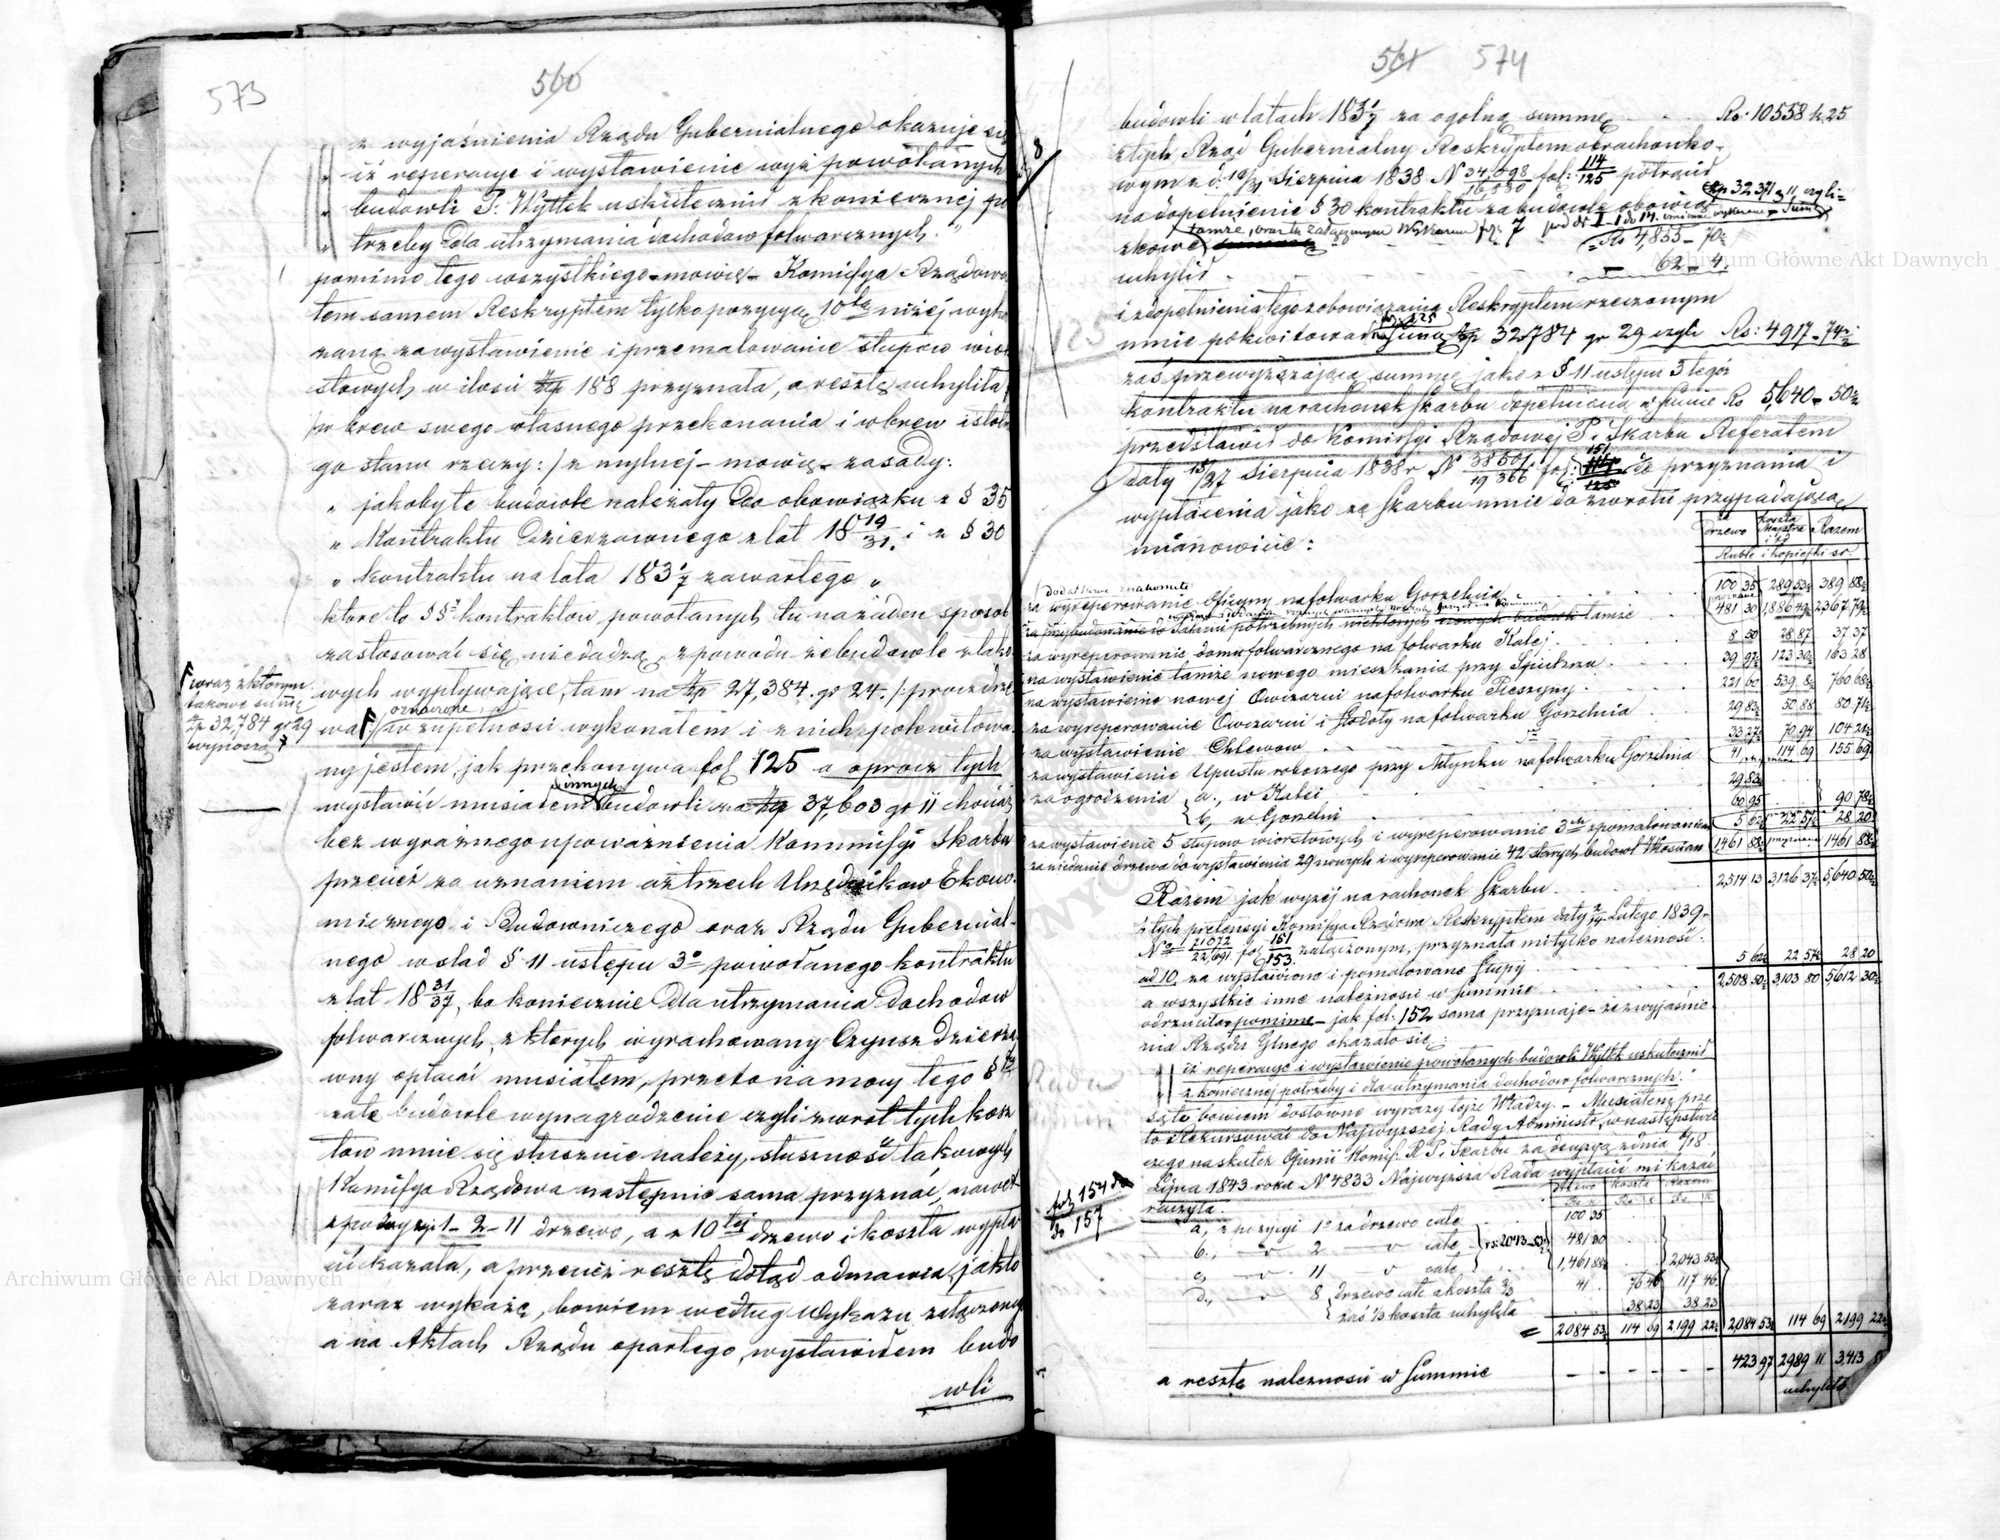 573
560
z wyjaśnienia Rządu Gubernialnego okazuje się
„ iż reperacye i wystawienie wyż powołanych
„ budowli P. Wyttek uskutecznił z koniecznej po
„ trzeby dla utrzymania dochodów folwarcznych. "
pomimo tego wszystkiego – mowię – Komissya Rządowa
tem samem Reskryptem tylko pozycyą 10tą niżej wyka
zaną za wystawienie i przemalowanie słupów wior
stowych w ilości złp 188 przyznała, a resztę uchyliła,
/:w brew swego własnego przekonania i wbrew istotne
go stanu rzeczy:/ z mylnej – mowię – zasady:
„ jakoby te budowle należały do obowiązku z § 35
„ Kontraktu Dzierżawnego z lat 18 19/31. i z § 30
„ Kontraktu na lata 183 1/7 zawartego „
które to §§y kontraktów powołanych tu na żaden sposób
zastosować się niedadzą, z powodu że budowle z tako
wych wypływające, tam na złp 27,384. gr 24. /: procz drze
wa oznaczone :/ w zupełności wykonałem i z nich pokwitowa
wraz z którym
takowe summę
złp 32,784 gr 29
wynoszą
ny jestem, jak przekonywa fol 125 a oprocz tych
wystawić musiałem innych budowli za złp 37,603 gr 11 chociaż
bez wyraźnego upoważnienia Kommissyi Skarbu
przecież za uznaniem aż trzech Urzędników Ekono-
micznego i Budowniczego oraz Rządu Gubernial-
nego w ślad § 11 ustępu 3o powołanego kontraktu
z lat 18 31/37, bo koniecznie dla utrzymania dochodów
folwarcznych, z których wyrachowany Czynsz Dzierża
wny opłacać musiałem, przeto na mocy tego §
za te budowle wynagrodzenie czyli zwrot tych kosz
tów mnie się słusznie należy, słuszność takowych
Komissya Rządowa następnie sama przyznać, nawet
z pozycyi 1 – 2 – 11 drzewo, a z 10tej drzewo i koszta wypła
cić kazała, a przecież resztę dotąd odmawia, jak to
zaraz wykażę, bowiem według Wykazu załączonego
a na Aktach Rządu opartego, wystawiłem budo
wli
561 574
budowli w latach 183 1/7 za ogolną summę – – Rs: 10558 k. 25
z tych Rząd Gubernialny Reskryptem obrachunko-
wym z d: 19/31 Sierpnia 1838 N 34,098/16,830 fol: 114/125 potrącił
na dopełnienie § 30 kontraktu za budowle obowią złp 32371 g 11 czyli
zkowe tamże, oraz tu załączonym Wykazem fol: 7 pod Nr 1 do 14.
Rs 4,855 – 70½
uchylił – – – – 62 – 4.
i z dopełnienia tego zobowiązania Reskryptem rzeczonym
mnie pokwitował fol. 125 na summę złp 32,784 gr 29 czyli Rs: 4917 – 74½
zaś przewyższającą summę jako z § 11 ustępu 3 tegoż
kontraktu na rachunek Skarbu dopełnioną w Summie Rs 5,640 – 50½
przedstawił do Komissyi Rządowej P. i Skarbu Referatem
daty 15/27 Sierpnia 1838 r N 38501/19366 fol: 151 do przyznania i
wypłacenia jako za Skarbu mnie do zwrotu przypadającą,
mianowicie:
za drzewo | Koszta Majstra i td | Razem
Ruble i kopiejki sr.
Dodatkowe znakomite
za wyreperowanie Oficyny na folwarku Gorzelnia 100 35 | 289 53½ | 389 88½
481 30 | 1886 49½ | 2367 79½
za wyreperowanie domu folwarcznego na folwarku Kalej 8 50 | 28 87 | 37 37
na wystawienie tamże nowego mieszkania przy Spichrzu 39 97½ | 123 30½ | 163 28
na wystawienie nowej Owczarni na folwarku Pieszyny 221 60 | 539 8½ | 760 68½
za wyreperowanie Owczarni i Stodoły na folwarku Gorzelnia 29 83½ | 50 88 | 80 71½
za wystawienie Chlewow 33 27½ | 70 94 | 104 21½
za wystawienie Upustu roboczego przy Młynku na folwarku Gorzelnia 41 | 114 69 | 155 69
za ogrodzenia a., w Kalei 29 83½
b, w Gorzelni 60 95 | 90 78½
za wystawienie 5 słupow wiorstowych i wyreperowanie 3ch z pomalowaniem 5 62½ | 22 57½ | 28 20
za niedanie drzewa do wystawienia 29 nowych i wyreperowanie 42 starych budowl Włościan 1461 88½ | | 1461 88½
Razem jak wyżej na rachunek Skarbu 2,514 13 | 3,126 37½ | 5,640 50½
z tych pretensyi Komissya Rządowa Reskryptem daty 2/14 Lutego 1839.
No 21072/22,691 fol 151/153. załączonym, przyznała mi tylko należność
ad 10, za wystawione i pomalowane Słupy 5 62½ | 22 57½ | 28 20
a wszystkie inne należności w Summie 2,508 50½ | 3,103 80 | 5,612 30½
odrzuciła – pomimo – jak fol: 152 sama przyznaje – że z wyjaśnie
nia Rządu Glnego okazało się:
„ iż reperacye i wystawienie powołanych budowli Wyttek uskutecznił
„ z koniecznej potrzeby i dla utrzymania dochodów folwarcznych."
są to bowiem dosłowne wyrazy tejże Władzy. – Musiałem prze
to Rekursować do Najwyższej Rady Administr, w następstwie
czego na skutek Opinii Komiss. R. P. i Skarbu za decyzyą z dnia 6/18
Lipca 1843 roku N 4833 Najwyższa Rada wypłacić mi kazać
raczyła.
fol. 154 do 157
Drzewo | Koszta | Razem
Rs k | Rs k | Rs k
a, z pozycyi 1o za drzewo całe 100 35
b., – „ 2 – „ całe rs: 2043 – 53½ 481 30
c, – „ 11 „ całe 1,461 88½ | | 2,043 53½
d., – „ 8 drzewo całe a koszta 2/3 41 . | 76 46 | 117 46
zaś 1/3 koszta uchyliła 38 23 | 38 23
= 2084 53½ | 114 69 | 2,199 22½ | 2,084 53½ | 114 69 | 2199 22½
a resztę należności w Summie – – – – 423 97 | 2989 11 | 3,413
uchyliła
Archiwum Główne Akt Dawnych
Archiwum Główne Akt Dawnych